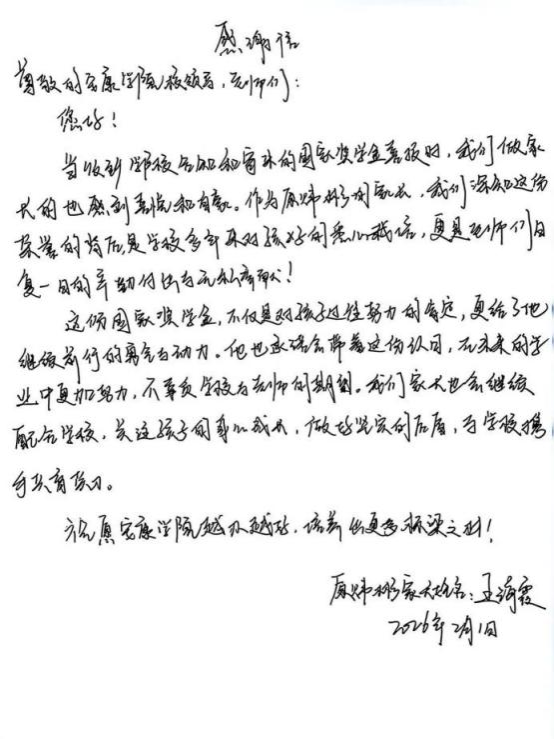 感谢信
尊敬的安康学院校领导、老师们：
您好！
当收到学校告知和寄来的国家奖学金喜报时，我们做家
长的也感到喜悦和自豪。作为原炜彬的家长，我们深知这份
荣誉的背后是学校多年来对孩子的悉心栽培，更是老师们日
复一日的辛勤付出与无私奉献！
这份国家奖学金，不仅是对孩子过往努力的肯定，更给了他
继续前行的勇气与动力。他也承诺会带着这份认可，在未来的学
业中更加努力，不辜负学校与老师的期望。我们家长也会继续
配合学校，关注孩子的身心成长，做好坚实的后盾，与学校携
手共育英才。
祝愿安康学院越办越好，培养出更多栋梁之材！
原炜彬家长姓名：王海霞
2026年2月1日